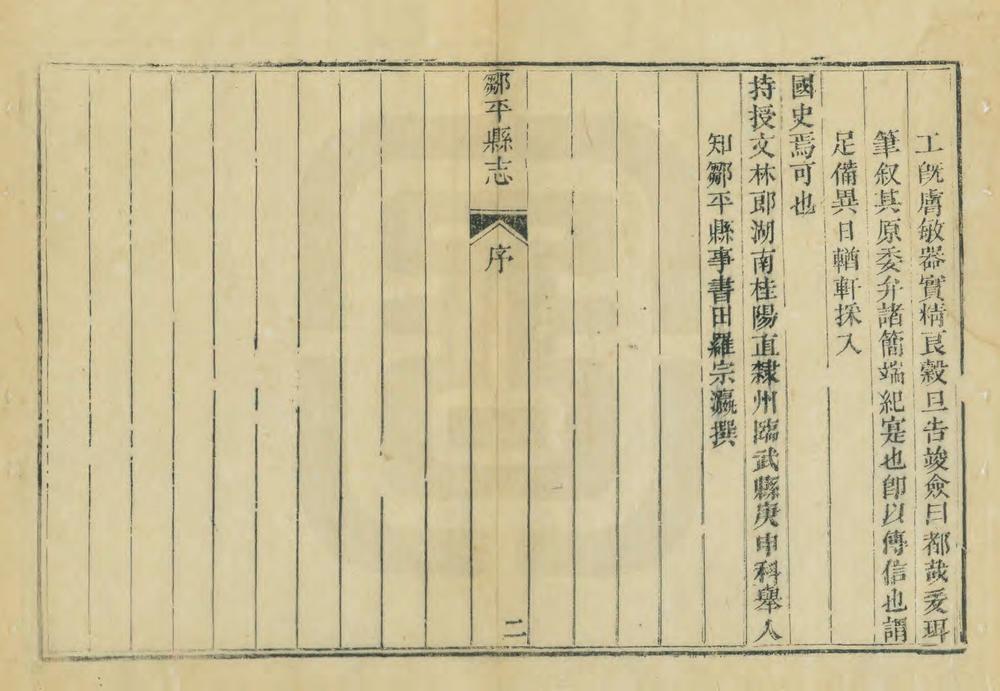 工旣膚敏器實精良穀旦告竣僉曰都哉爰珥
筆叙其原委弁諸簡端紀寔也卽以傳信也謂
足備異日輶軒採入
國史焉可也
持授文林郎湖南桂陽直隸州臨武縣庚申科舉人
知鄒平縣事書田羅宗瀛撰
鄒平縣志
序
二